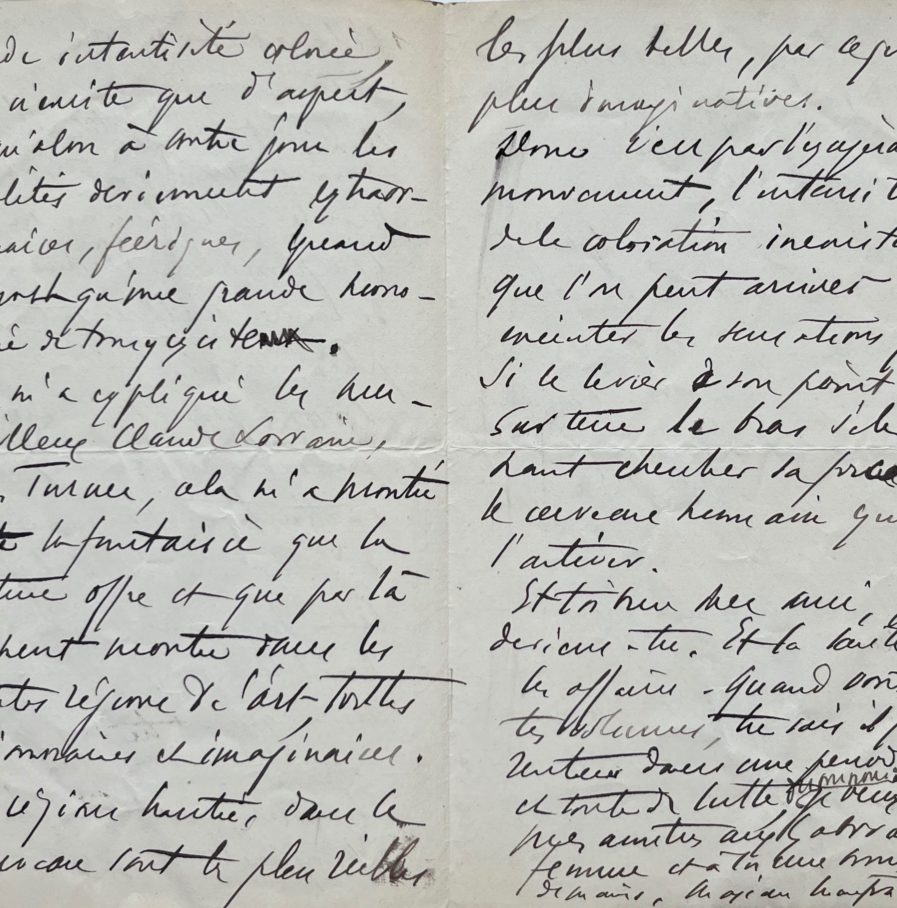 de intentisité colorée,
n'existe que d'aspect,
qu'alors à contre jour les
lités deviennent extraor-
naires, féériques, quand
qu'une grande harmo-
ie de
m'a expliqué les mer-
illeux Claude Lorrain,
Turner, cela m'a montré
la fantaisie que la
ture offre et que par là
peut monter dans les
tes régions de l'art toutes
et imaginaires.
régions hantées, dans le
cerveau sont les plus réelles
les plus belles, par ce qu
plus imaginatives.
Donc c'est par l'exagéra
mouvement, l'intensit
de la coloration inexista
que l'on peut arriver
les sensations,
Si le levier à son point
sur terre le bras
haut chercher sa force
le cerveau humain qu
l'activer.
Et toi mon cher ami,
deviens-tu. Et la santé
les affaires - Quand
tes volumes, tu sais il
rentrer dans une périod
et toute de lutte,
mes amitiés
femme et à toi une bonne
de mains,